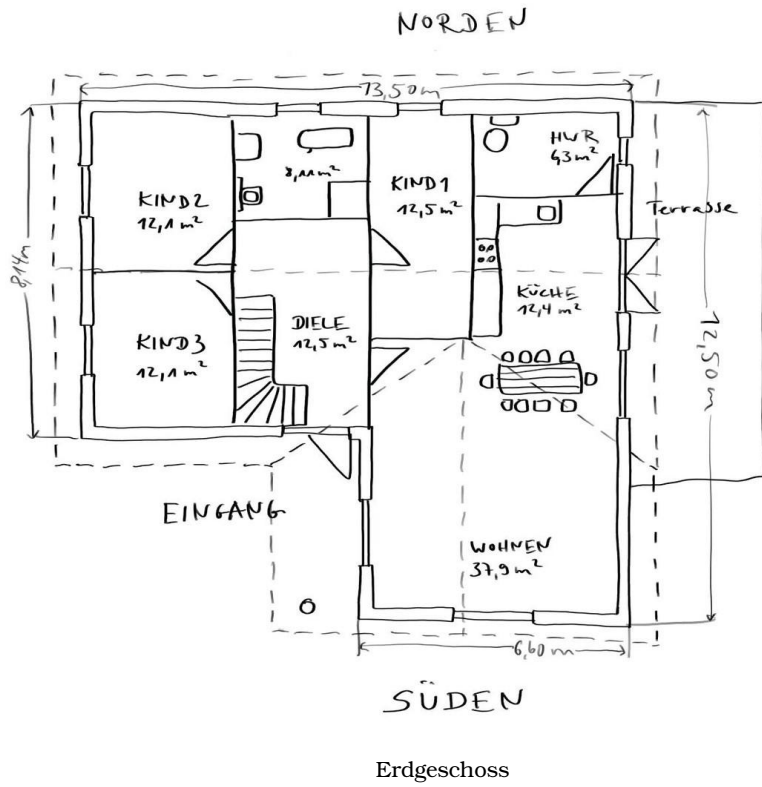 NORDEN
13,50 m
KIND 2
12,1 m²
8,11 m²
KIND 1
12,5 m²
HWR
6,3 m²
Terrasse
8,14 m
KÜCHE
12,4 m²
DIELE
12,5 m²
KIND 3
12,1 m²
12,50 m
EINGANG
WOHNEN
37,9 m²
6,60 m
SÜDEN
Erdgeschoss